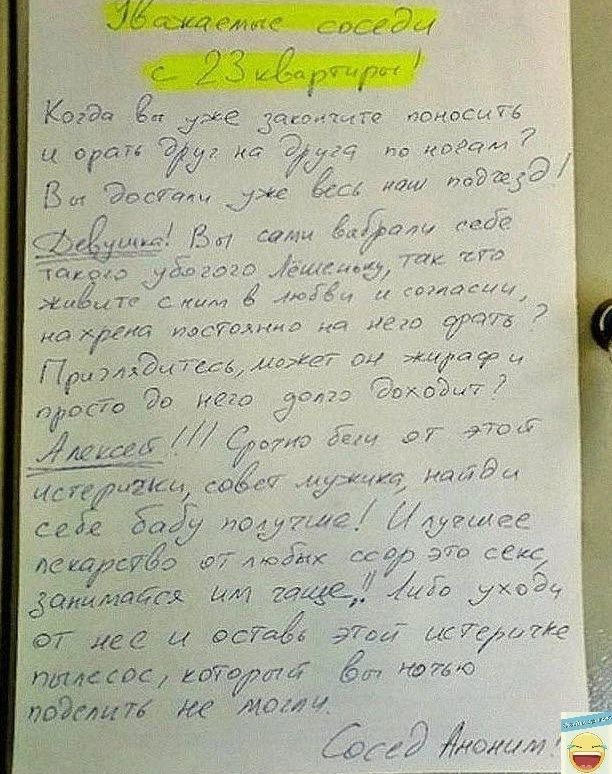 Уважаемые соседи
с 23 квартиры!
Когда вы уже закончите поносить
и орать друг на друга по ночам?
Вы достали уже весь наш подъезд!
Девушка! Вы сами выбрали себе
такого убогого Лёшеньку, так что
живите с ним в любви и согласии,
на хрена постоянно на него орать?
Приглядитесь, может он жираф и
просто до него долго доходит?
Алексей!!! Срочно беги от этой
истерички, совет мужика, найди
себе бабу получше! И лучшее
лекарство от любых ссор это секс,
занимайся им чаще,!! Либо уходи
от нее и оставь этой истеричке
пылесос, который вы ночью
поделить не могли.
Сосед Аноним!